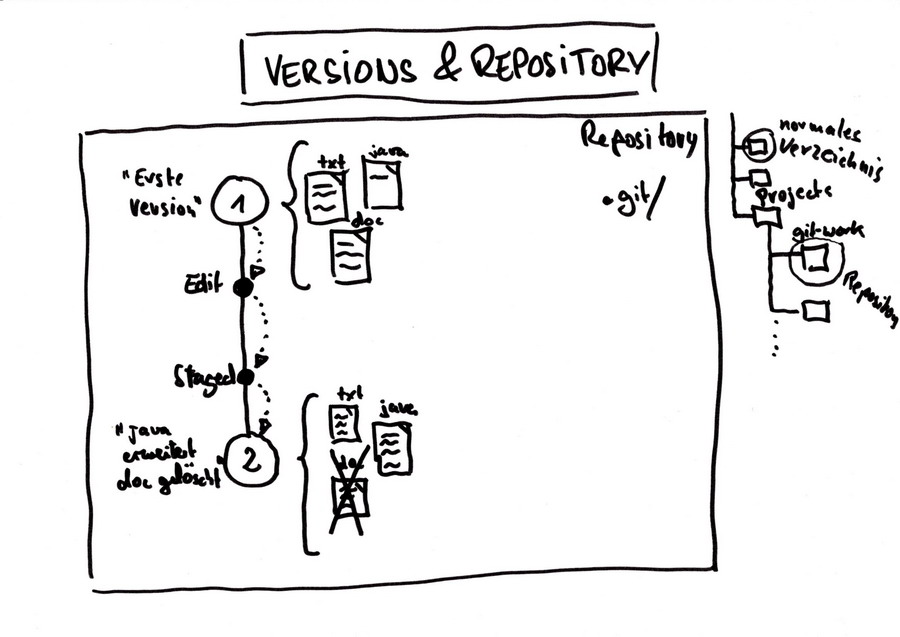 VERSIONS & REPOSITORY
Repository
.git/
"Erste
Version"
1
txt
java
doc
Edit
Staged
"java
erweitert
doc gelöscht"
2
txt
java
doc
normales
Verzeichnis
Projects
git-work
Repository